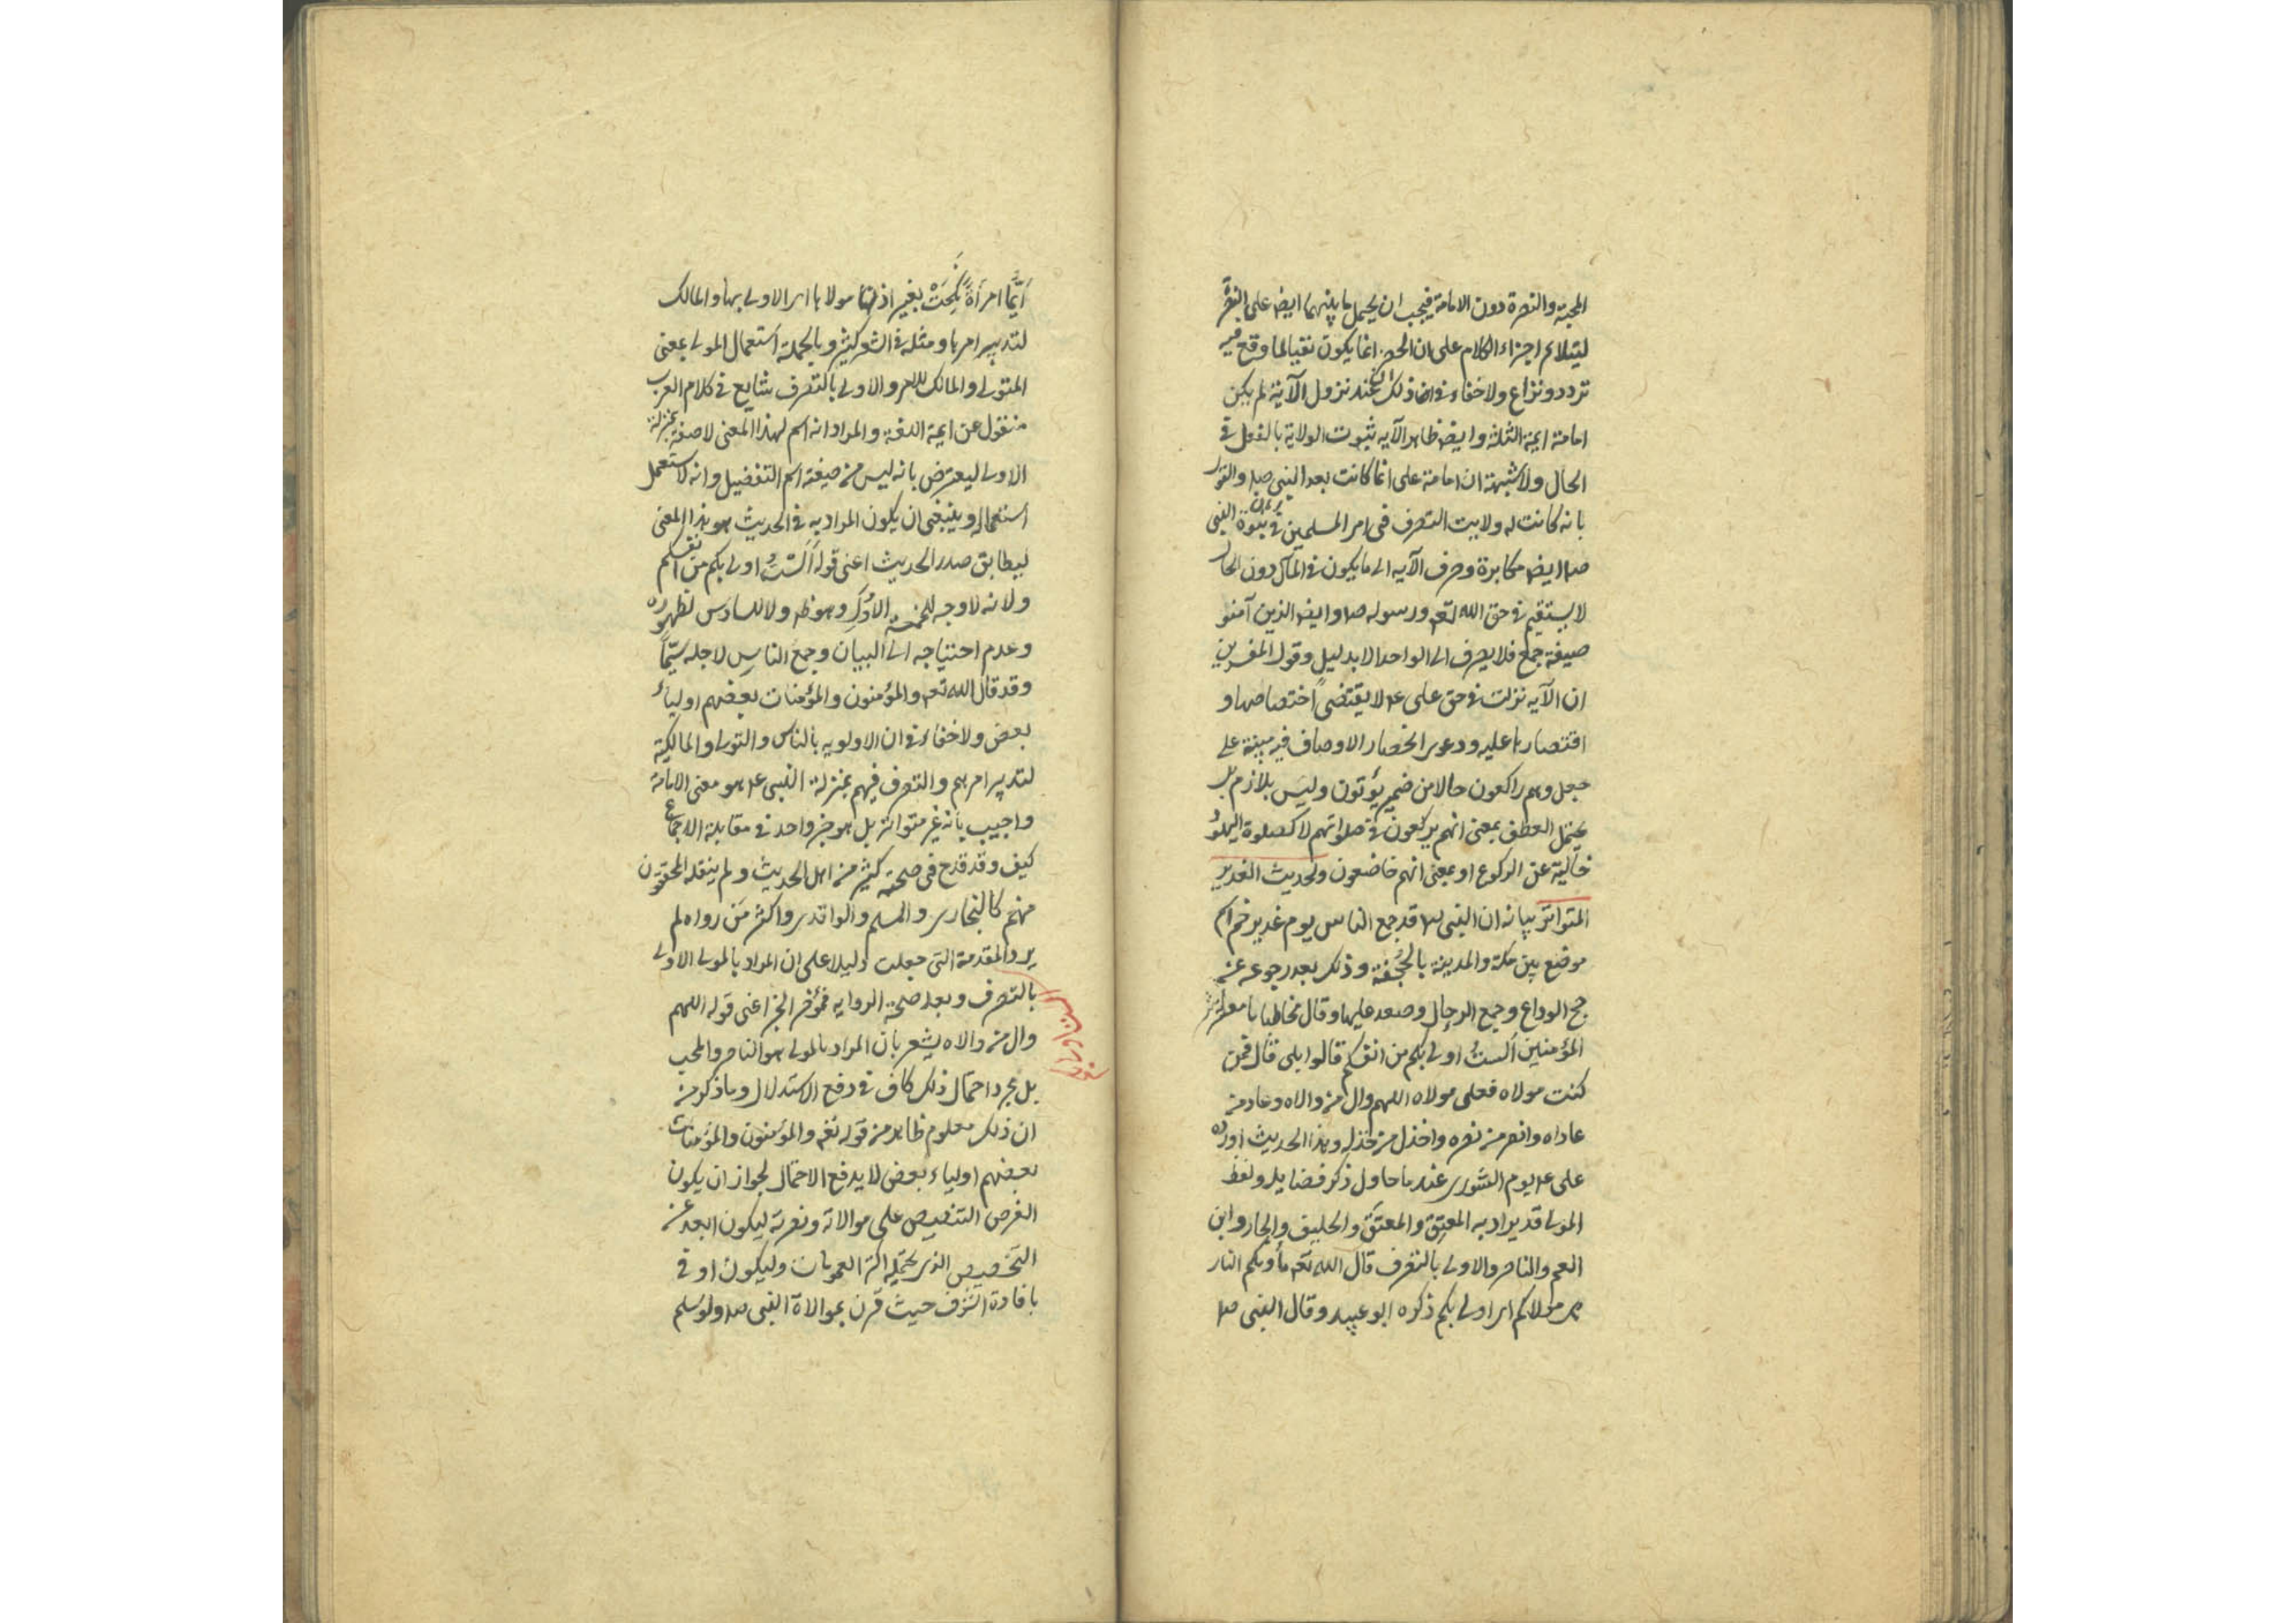 المحبة والنصرة دون الامامة فيجب ان يحمل ما بينهما ايضا على النصرة
ليتلائم اجزاء الكلام على ان الحصر انما يكون نفيا لما وقع فيه
تردد ونزاع ولا خفاء في ان ذلك عند نزول الآية لم يكن
امامة ايمة الثلثة وايضا ظاهر الآيه ثبوت الولاية بالفعل في
الحال ولا شبهة ان امامة على انما كانت بعد النبي صلم والقول
بانه كانت له ولايت التصرف فى امر المسلمين في حيوة النبى
صلم ايضا مكابرة وصرف الآيه الى ما يكون في المآل دون الحال
لا يستقيم في حق الله تعم ورسوله صلم وايضا الذين آمنوا
صيغة جمع فلا يصرف الى الواحد الا بدليل وقول المفسرين
ان الآيه نزلت في حق على عم لا يقتضى اختصاصها و
اقتصارها عليه ودعوى انحصار الاوصاف فيه مبنية على
جعل وهم راكعون حالا من ضمير يؤتون وليس بلازم بل
يحتمل العطف بمعنى انهم يركعون في صلواتهم لا كصلوة اليهود
خالية عن الركوع او بمعنى انهم خاضعون ولحديث الغدير
المتواتر بيانه ان النبى صلم قد جمع الناس يوم غدير خم اسم
موضع بين مكة والمدينة بالجُحْفة وذلك بعد رجوعه عن
حج الوداع وجمع الرحال وصعد عليها وقال مخاطبا يا معاشر
المؤمنين ألستُ اولى بكم من انفسكم قالوا بلى قال فمن
كنت مولاه فعلى مولاه اللهم وال من والاه وعاد من
عاداه وانصر من نصره واخذل من خذله وهذا الحديث اورده
على عم يوم الشورى عند ما حاول ذكر فضايله ولفظ
المولى قد يراد به المعتِق والمعتَق والحليف والجار وابن
العم والناصر والاولى بالتصرف قال الله تعم مأويكم النار
هي مولاكم اى اولى بكم ذكره ابو عبيده وقال النبى صلم
أيَّما امرأةً نُكِحَتْ بغير اذن مولاها اى الاولى بها والمالك
لتدبير امرها ومثله في الشعر كثير وبالجملة استعمال المولى بمعنى
المتولى والمالك للامر والاولى بالتصرف شايع في كلام العرب
منقول عن ايمة اللغة والمراد انه اسم لهذا المعنى لا صفة بمنزلة
الاولى ليعترض بانه ليس من صيغة اسم التفضيل وانه لا يستعمل
استعماله وينبغى ان يكون المراد به في الحديث هو هذا المعنى
ليطابق صدر الحديث اعنى قوله ألَسْتُ اولى بكم من انفسكم
ولانه لا وجه للخمسة الاُوَلِ وهو ظاهر ولا للسادس لظهوره
وعدم احتياجه الى البيان وجمع الناس لاجله سيّما
وقد قال الله تعم والمؤمنون والمؤمنات بعضهم اولياء
بعض ولا خفاء في ان الاولويه بالناس والتولى والمالكية
لتدبير امرهم والتصرف فيهم بمنزلة النبى عم هو معنى الامامة
واجيب بانه غير متواتر بل هو خبر واحد في مقابلة الاجماع
كيف وقد قدح فى صحته كثير من اهل الحديث ولم ينقله المحققون
منهم كالبخارى والمسلم والواقدى واكثر من رواه لم
يرو المقدمة التى جعلت دليلا على ان المراد بالمولى الاولى
بالتصرف وبعد صحة الروايه فمؤخر الخبر اعنى قوله اللهم
وال من والاه يشعر بان المراد بالمولى هو الناصر والمحب
بل مجرد احتمال ذلك كاف في دفع الاستدلال وما ذكر من
ان ذلك معلوم ظاهر من قوله تعم والمؤمنون والمؤمنات
بعضهم اولياء بعض لا يدفع الاحتمال لجواز ان يكون
الغرض التنصيص على موالاته ونصرته ليكون ابعد عن
التخصيص الذى يحتمله اكثر العمومات وليكون اوفى
بافادة الشرف حيث قرن بموالاة النبى صلم ولو سلم